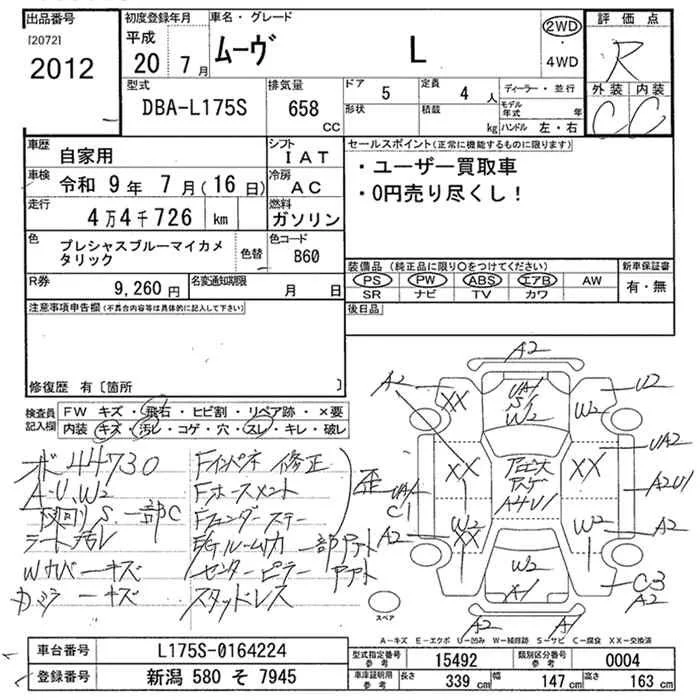 出品番号
[2072]
2012
初度登録年月
平成
20 7月
車名・グレード
ムーヴ L
2WD
・
4WD
評価点
R
外装 内装
C C
型式
DBA-L175S
排気量
658
CC
ドア 5
形状
定員 4 人
積載 kg
ディーラー・並行
モデル年式 年
ハンドル 左・右
車歴
自家用
シフト
IAT
車検 令和 9年 7月(16日)
冷房
AC
走行
4万4千726 km
燃料
ガソリン
色
プレシャスブルーマイカメタリック
色替
色コード
B60
R券
9,260円
名変通知期限
月 日
セールスポイント(正常に機能するものに限ります)
・ユーザー買取車
・0円売り尽くし!
装備品(純正品に限り〇をつけてください)
PS PW ABS エアB AW
SR ナビ TV カワ
新車保証書
有・無
後日品
注意事項申告欄(不具合内容等は具体的に記入して下さい)
修復歴 有〔箇所 〕
検査員記入欄
FW キズ・飛石・ヒビ割・リペア跡・×要
内装 キズ・汚レ・コゲ・穴・スレ・キレ・破レ
44730
A・U、W2
シート汚レ
WカバーキズF
インパネ 修正
Fホースメント
Fフェンダーステー
センターピラー
スタッドレス
歪
A2
A2
XX
UA1
S1
W2
W2
U2
UA2
XX
XX
A4U1
UA1
C1
A2U1
A2
W2
XX
W2
A2
W2
A1
C3
A2
A2
A1
スペア
A-キズ E-エクボ U-凹み W-補修跡 S-サビ C-腐食 XX-交換済
車台番号
L175S-0164224
登録番号
新潟 580 そ 7945
型式指定番号
参考
15492
類別区分番号
参考
0004
車庫証明用
参考
長さ 339 cm
幅 147 cm
高さ 163 cm